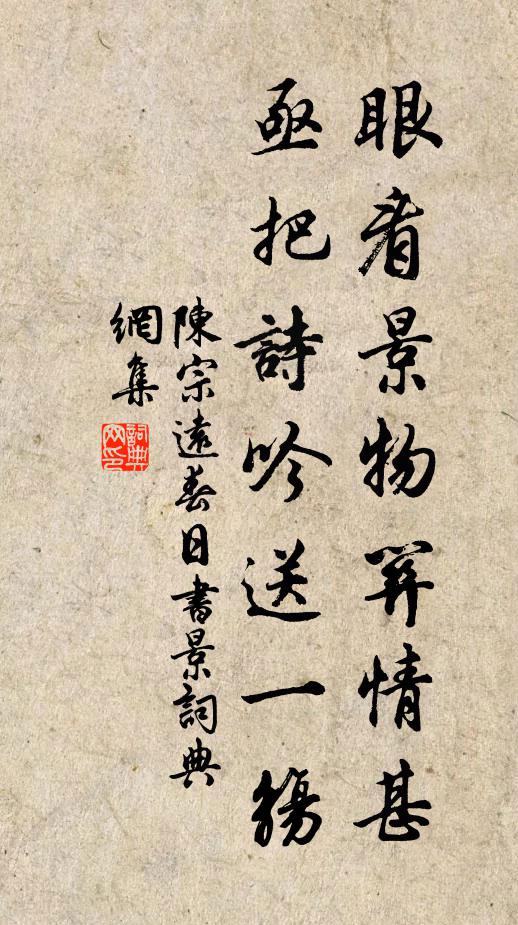 眼看景物笄情甚
亟把詩吟送一觴
陳宗遠春日書景詞典
網集
詞典
网印